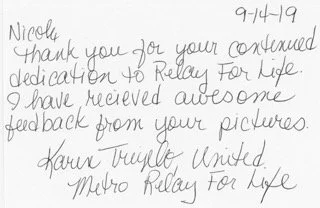 9-14-19
Nicole,
Thank you for your continued
dedication to Relay For Life.
I have recieved awesome
feedback from your pictures.
Karen United
Metro Relay For Life